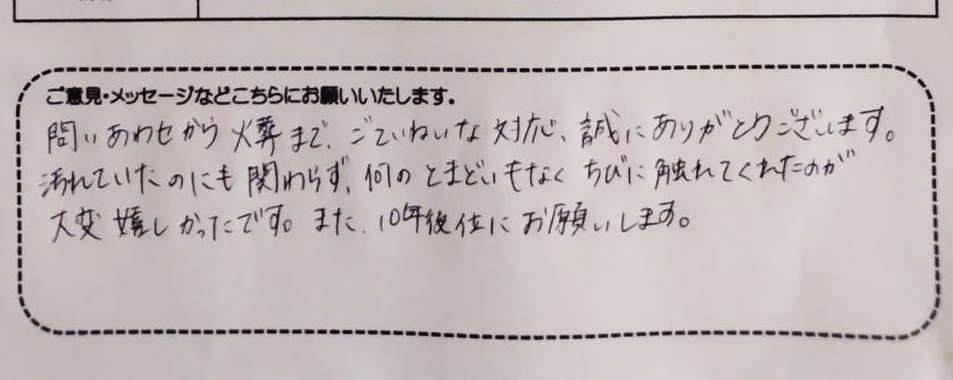 ご意見・メッセージなどこちらにお願いいたします。
問いあわせから火葬まで、ごていねいな対応、誠にありがとうございます。
汚れていたのにも関わらず、何のとまどいもなくちびに触れてくれたのが
大変嬉しかったです。また、10年後位にお願いします。